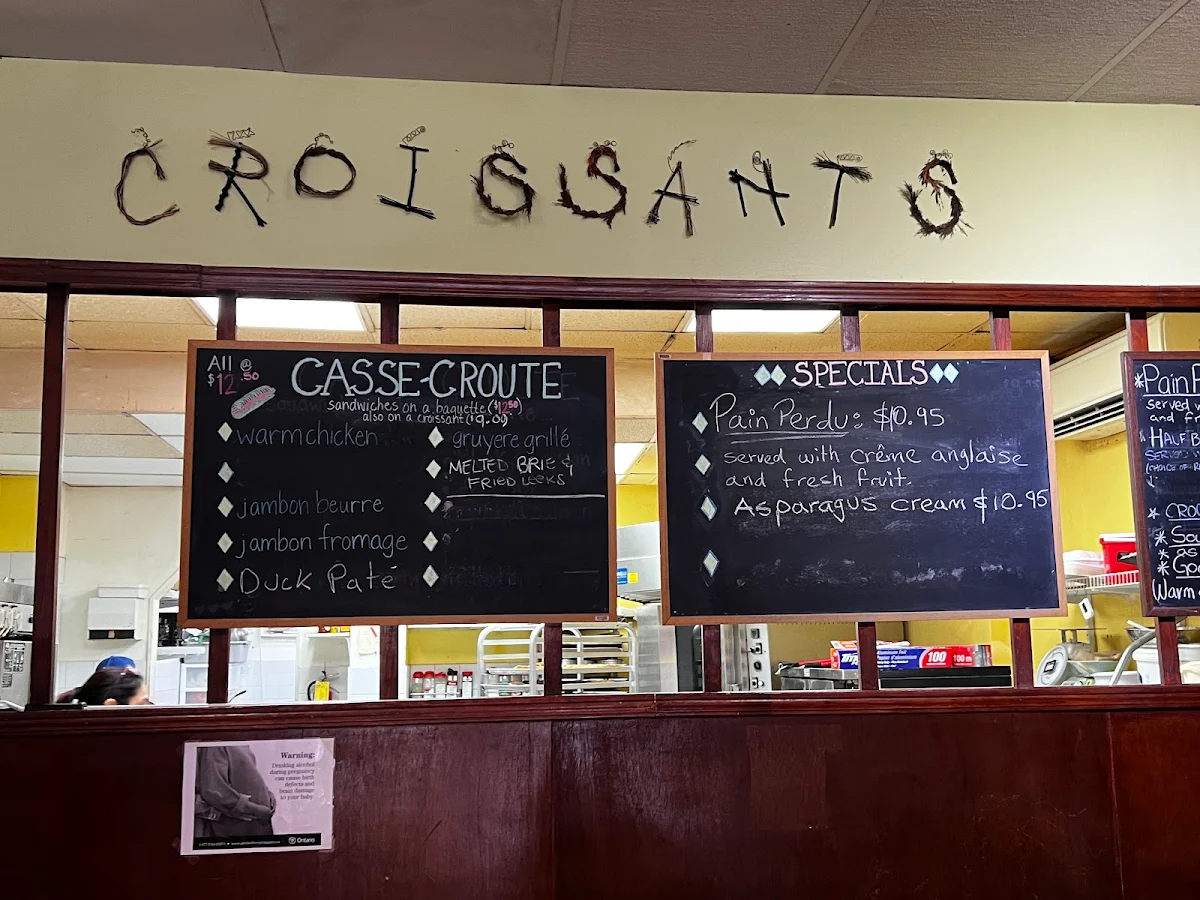 CROISSANTS
All @
$12.50
CASSE-CROUTE
sandwiches on a baguette ($12.50)
also on a croissant ($9.00)
warm chicken
jambon beurre
jambon fromage
Duck Paté
gruyere grillé
MELTED BRIE &
FRIED LEEKS
SPECIALS
Pain Perdu: $10.95
served with crême anglaise
and fresh fruit.
Asparagus cream $10.95
*Pain P
served w
and fr
HALF B
* CROQ
* Sou
* as
* Goa
Warm
TITA
100
100 m
Warning:
Drinking alcohol
during pregnancy
can cause birth
defects and
brain damage
to your baby.
Ontario